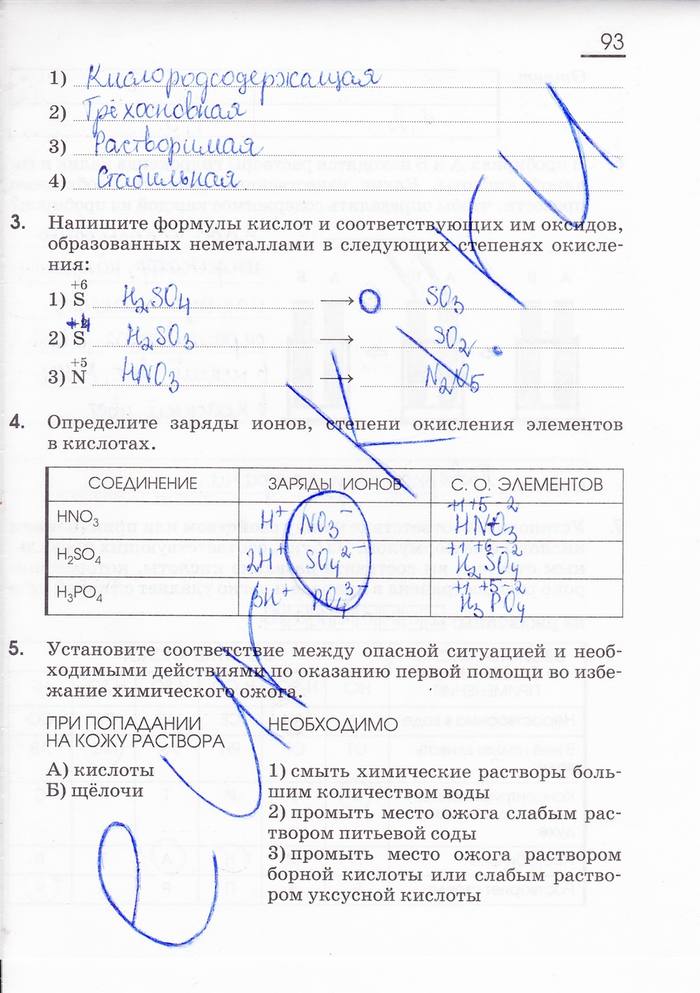 93
1) Кислородсодержащая
2) Трёхосновная
3) Растворимая
4) Стабильная
3. Напишите формулы кислот и соответствующих им оксидов,
образованных неметаллами в следующих степенях окисле-
ния:
+6
1) S H₂SO₄ → SO₃
+4
2) S H₂SO₃ → SO₂
+5
3) N HNO₃ → N₂O₅
4. Определите заряды ионов, степени окисления элементов
в кислотах.
СОЕДИНЕНИЕ ЗАРЯДЫ ИОНОВ С. О. ЭЛЕМЕНТОВ
+1 +5 -2
HNO₃ H⁺ NO₃⁻ HNO₃
+1 +6 -2
H₂SO₄ 2H⁺ SO₄²⁻ H₂SO₄
+1 +5 -2
H₃PO₄ 3H⁺ PO₄³⁻ H₃PO₄
5. Установите соответствие между опасной ситуацией и необ-
ходимыми действиями по оказанию первой помощи во избе-
жание химического ожога.
ПРИ ПОПАДАНИИ
НА КОЖУ РАСТВОРА
А) кислоты
Б) щёлочи
НЕОБХОДИМО
1) смыть химические растворы боль-
шим количеством воды
2) промыть место ожога слабым рас-
твором питьевой соды
3) промыть место ожога раствором
борной кислоты или слабым раство-
ром уксусной кислоты